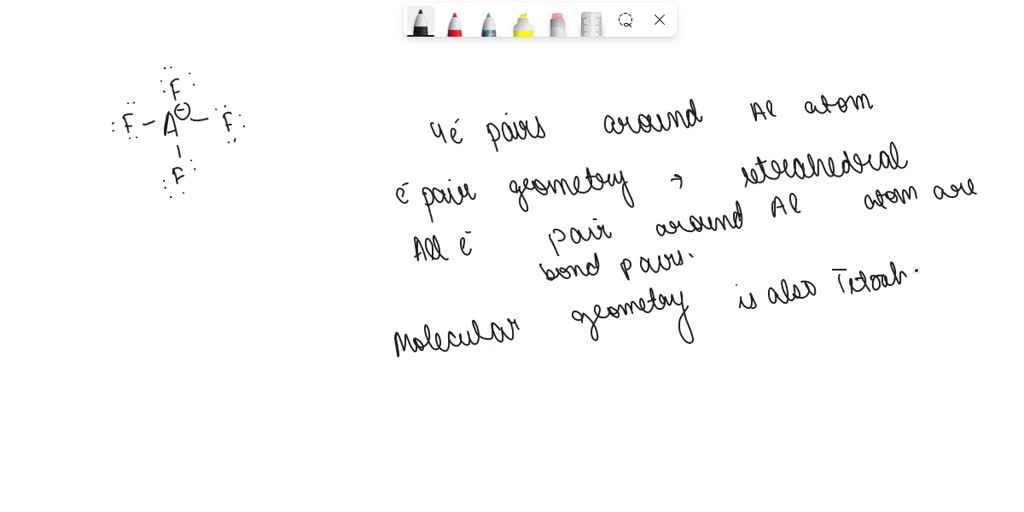 F
F - A⊖ - F
F
4 e⁻ pairs around Al atom
e⁻ pair geometry → tetrahedral
All e⁻ pair around Al atom are
bond pairs.
Molecular geometry is also Tetrah.